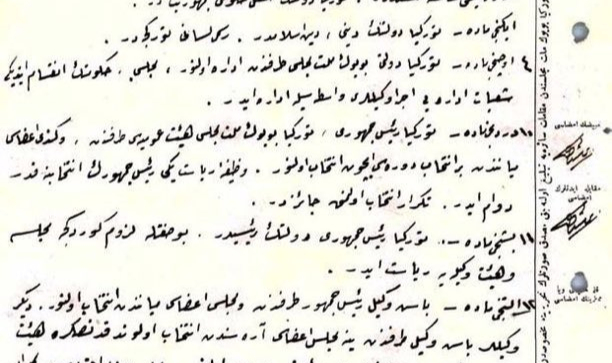 ایكنجی ماده – توركیا دولتنك دینی ، دین اسلامدر . رسمی لسانی توركجه در .
٤ اوچنجی ماده – توركیا دولتی بویوك ملت مجلسی طرفندن اداره اولنور ، مجلس ، حكومتك انقسام ایتدیكی
شعبات اداره یی اجرا وكیللری واسطه سیله اداره ایدر .
١٠ دردنجی ماده – توركیا رئیس جمهوری ، توركیا بویوك ملت مجلسی هیئت عمومیه سی طرفندن ، و كندی اعضاسی
میانندن بر انتخاب دوره سی ایچون انتخاب اولنور . وظیفۀ ریاست یكی رئیس جمهورك انتخابنه قدر
دوام ایدر . تكرار انتخاب اولنمق جائزدر .
١١ بشنجی ماده – توركیا رئیس جمهوری دولتك رئیسیدر . بو صفتله لزوم كوردكجه مجلسه
و هیئت وكیله یه ریاست ایدر .
١٢ آلتنجی ماده – باش وكیل رئیس جمهور طرفندن و مجلس اعضاسی میانندن انتخاب اولنور . دیكر
وكیللر باش وكیل طرفندن ینه مجلس اعضاسی آره سندن انتخاب اولوندقدنصكره هیئت
مبیضك امضاسی
مقابله ایدنلرك
امضاسی